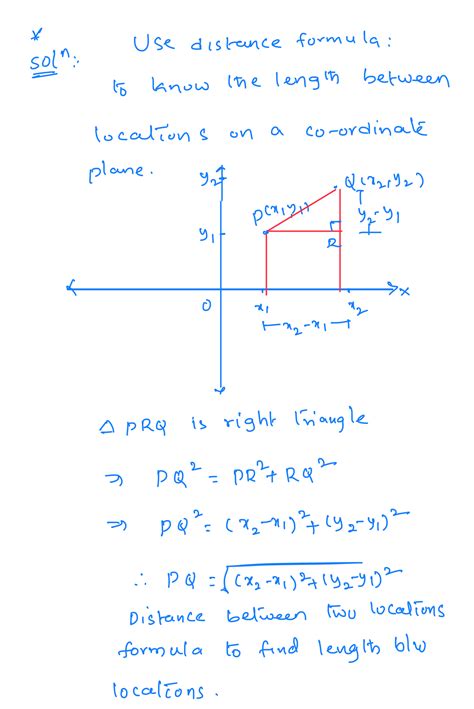 *
Solⁿ:
Use distance formula:
to know the length between
locations on a co-ordinate
plane.
y₂
Q(x₂,y₂)
P(x₁y₁)
y₂-y₁
y₁
R
x
0
x₁
x₂
x₂-x₁
△ PRQ is right triangle
⇒ PQ² = PR²+RQ²
⇒ PQ² = (x₂-x₁)²+(y₂-y₁)²
∴ PQ = √(x₂-x₁)²+(y₂-y₁)²
Distance between two locations
formula to find length b/w
locations.